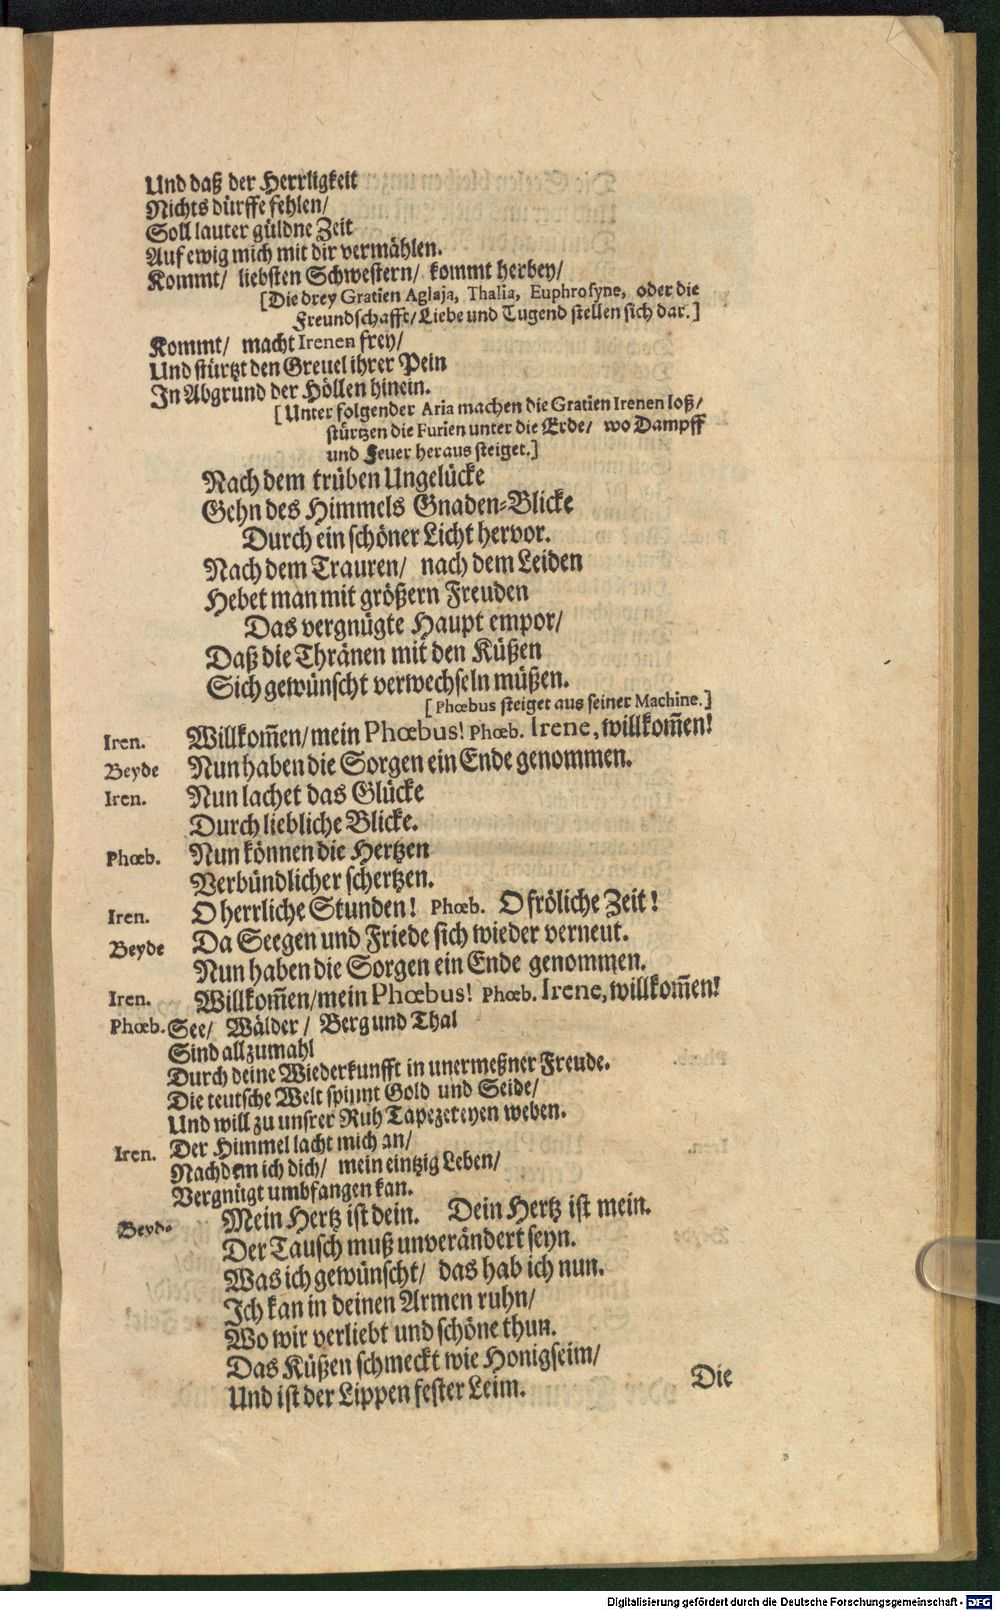 Und daß der Herrligkeit
Nichts dürffe fehlen/
Soll lauter güldne Zeit
Auf ewig mich mit dir vermählen.
Kommt/ liebsten Schwestern/ kommt herbey/
[Die drey Gratien Aglaja, Thalia, Euphrosyne, oder die
Freundschafft/ Liebe und Tugend stellen sich dar.]
Kommt/ macht Irenen frey/
Und stürtzt den Greuel ihrer Pein
In Abgrund der Höllen hinein.
[Unter folgender Aria machen die Gratien Irenen loß/
stürtzen die Furien unter die Erde/ wo Dampff
und Feuer heraus steiget.]
Nach dem trüben Ungelücke
Gehn des Himmels Gnaden-Blicke
Durch ein schöner Licht hervor.
Nach dem Trauren/ nach dem Leiden
Hebet man mit größern Freuden
Das vergnügte Haupt empor/
Daß die Thränen mit den Küßen
Sich gewünscht verwechseln müßen.
[Phœbus steiget aus seiner Machine.]
Iren. Willkom̃en/ mein Phœbus! Phœb. Irene, willkom̃en!
Beyde Nun haben die Sorgen ein Ende genommen.
Iren. Nun lachet das Glücke
Durch liebliche Blicke.
Phœb. Nun können die Hertzen
Verbündlicher schertzen.
Iren. O herrliche Stunden! Phœb. O fröliche Zeit!
Beyde Da Seegen und Friede sich wieder verneut.
Nun haben die Sorgen ein Ende genommen.
Iren. Willkom̃en/ mein Phœbus! Phœb. Irene, willkom̃en!
Phœb. See/ Wälder/ Berg und Thal
Sind allzumahl
Durch deine Wiederkunfft in unermeßner Freude.
Die teutsche Welt spinnt Gold und Seide/
Und will zu unsrer Ruh Tapezereyen weben.
Iren. Der Himmel lacht mich an/
Nachdem ich dich/ mein eintzig Leben/
Vergnügt umbfangen kan.
Beyde Mein Hertz ist dein. Dein Hertz ist mein.
Der Tausch muß unverändert seyn.
Was ich gewünscht/ das hab ich nun.
Ich kan in deinen Armen ruhn/
Wo wir verliebt und schöne thun.
Das Küßen schmeckt wie Honigseim/
Und ist der Lippen fester Leim.
Die
Digitalisierung gefördert durch die Deutsche Forschungsgemeinschaft - DFG